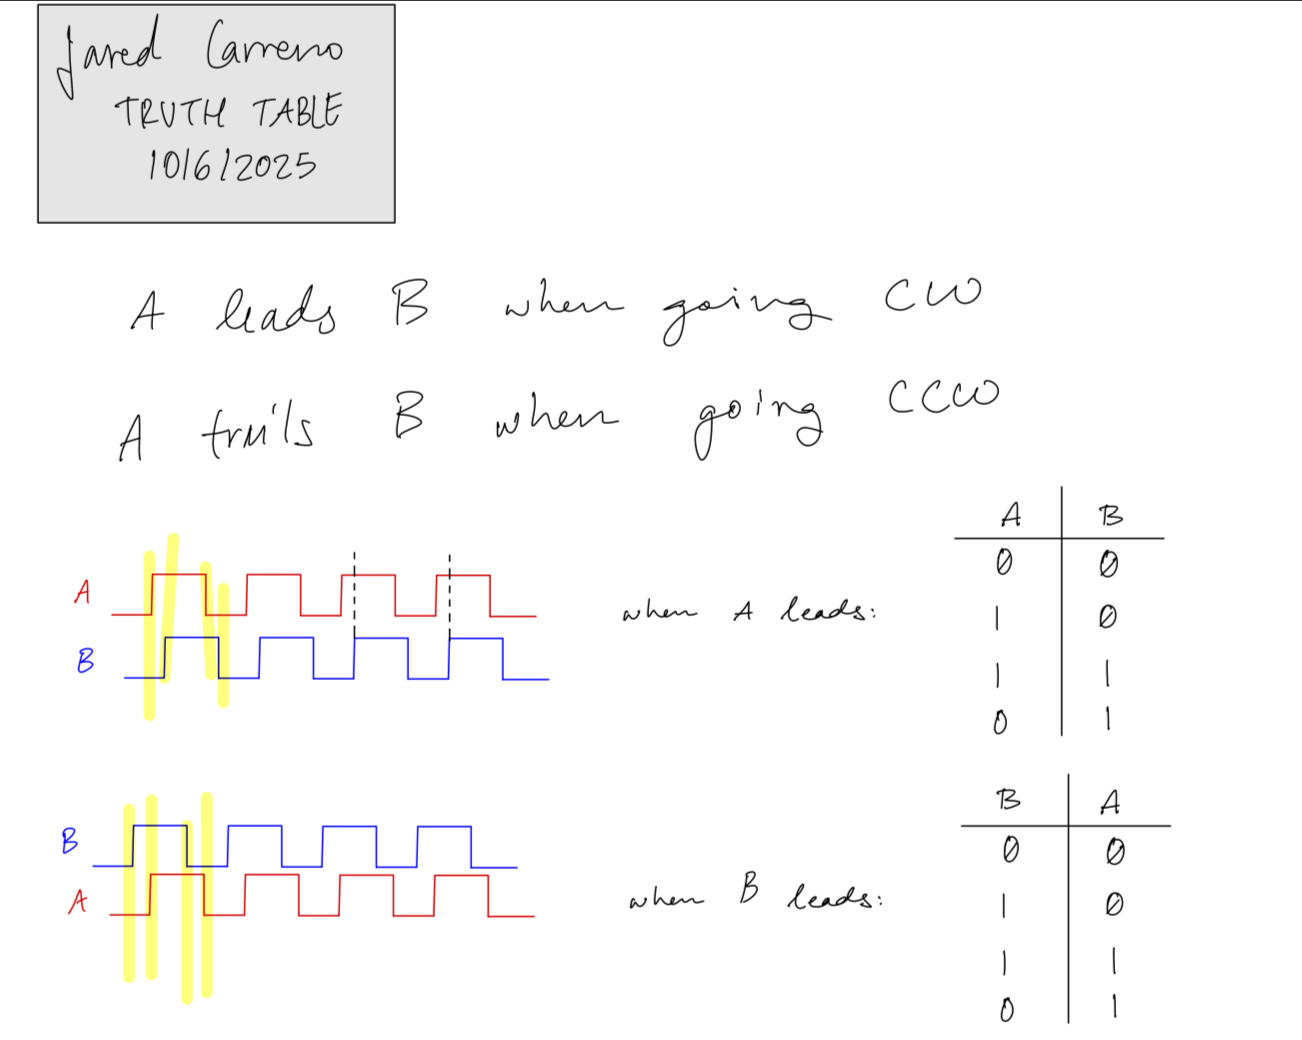 Jared Carreno
TRUTH TABLE
10/6/2025
A leads B when going CW
A trails B when going CCW
A
B
when A leads:
A B
0 0
1 0
1 1
0 1
B
A
when B leads:
B A
0 0
1 0
1 1
0 1